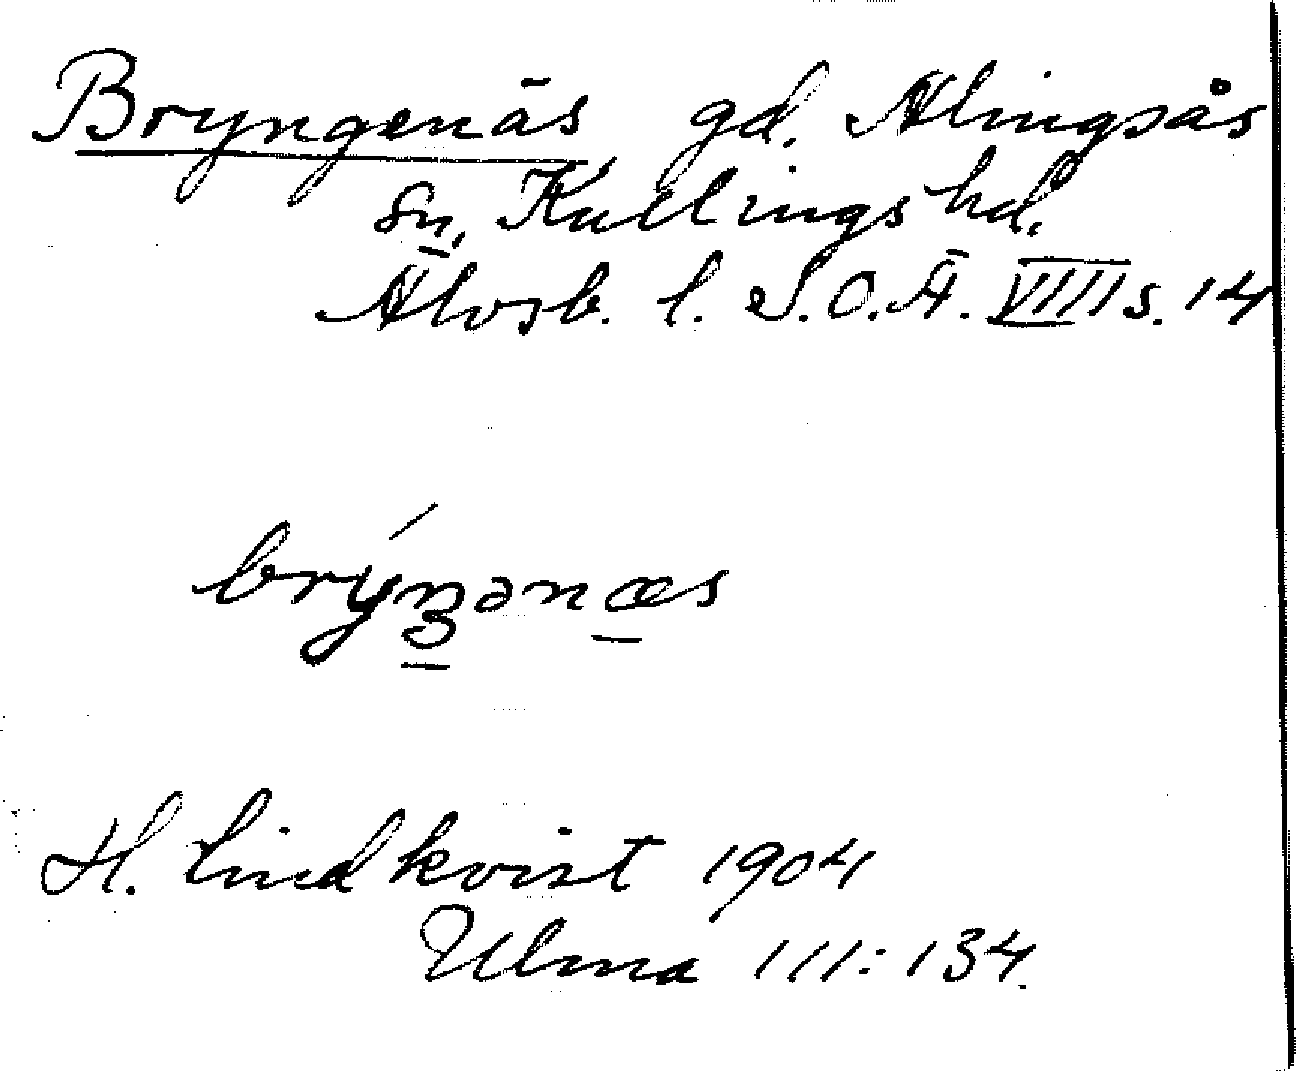 Bryngenäs gd. Alingsås
sn, Kullings hd.
Älvsb. l. S.O.Ä. VIII s. 14
H. Lindkvist 1904
Ulma 111:134.